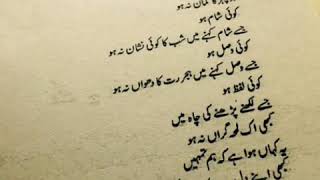 کا گماں نہ ہو
کوئی شام ہو
جسے شام کہنے میں شب کا کوئی نشان نہ ہو
کوئی وصل ہو
جسے وصل کہنے میں ہجر رت کا دھواں نہ ہو
کوئی لفظ ہو
جسے لکھنے پڑھنے کی چاہ میں
کبھی اک لمحہ گراں نہ ہو
یہ کہاں ہوا ہے کہ ہم تمہیں
کبھی اپنے دل